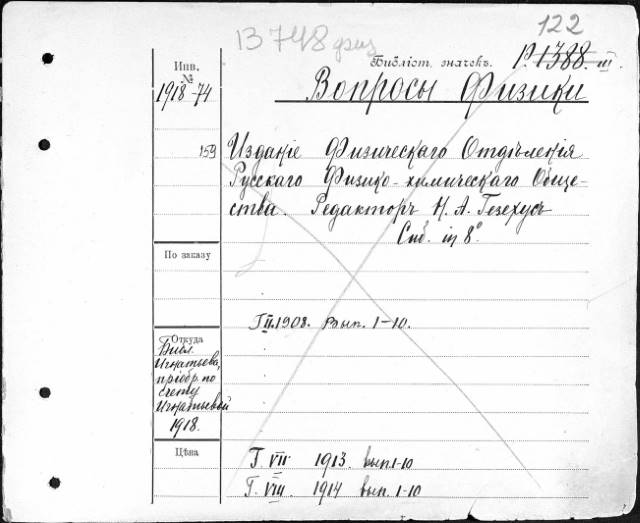 13748 физ
122
Инв.
№
1918-74
Библіот. значекъ. Р. 1388. III.
Вопросы Физики
159
Изданіе Физическаго Отдѣленія
Русскаго Физико-химическаго Обще-
ства. Редакторъ Н. А. Гезехусъ
Спб. in 8°
По заказу
Г. II. 1908. Вып. 1-10.
Откуда
Библ.
Игнатьева,
пріобр. по
счету
Игнатьевой
1918.
Цѣна
Г. VII 1913. вып. 1-10
Г. VIII. 1914 вып. 1-10